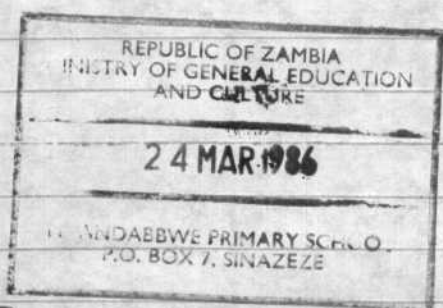 REPUBLIC OF ZAMBIA
INISTRY OF GENERAL EDUCATION
AND CULTURE
24 MAR 1986
NDABBWE PRIMARY SCHOO
P.O. BOX 7, SINAZEZE